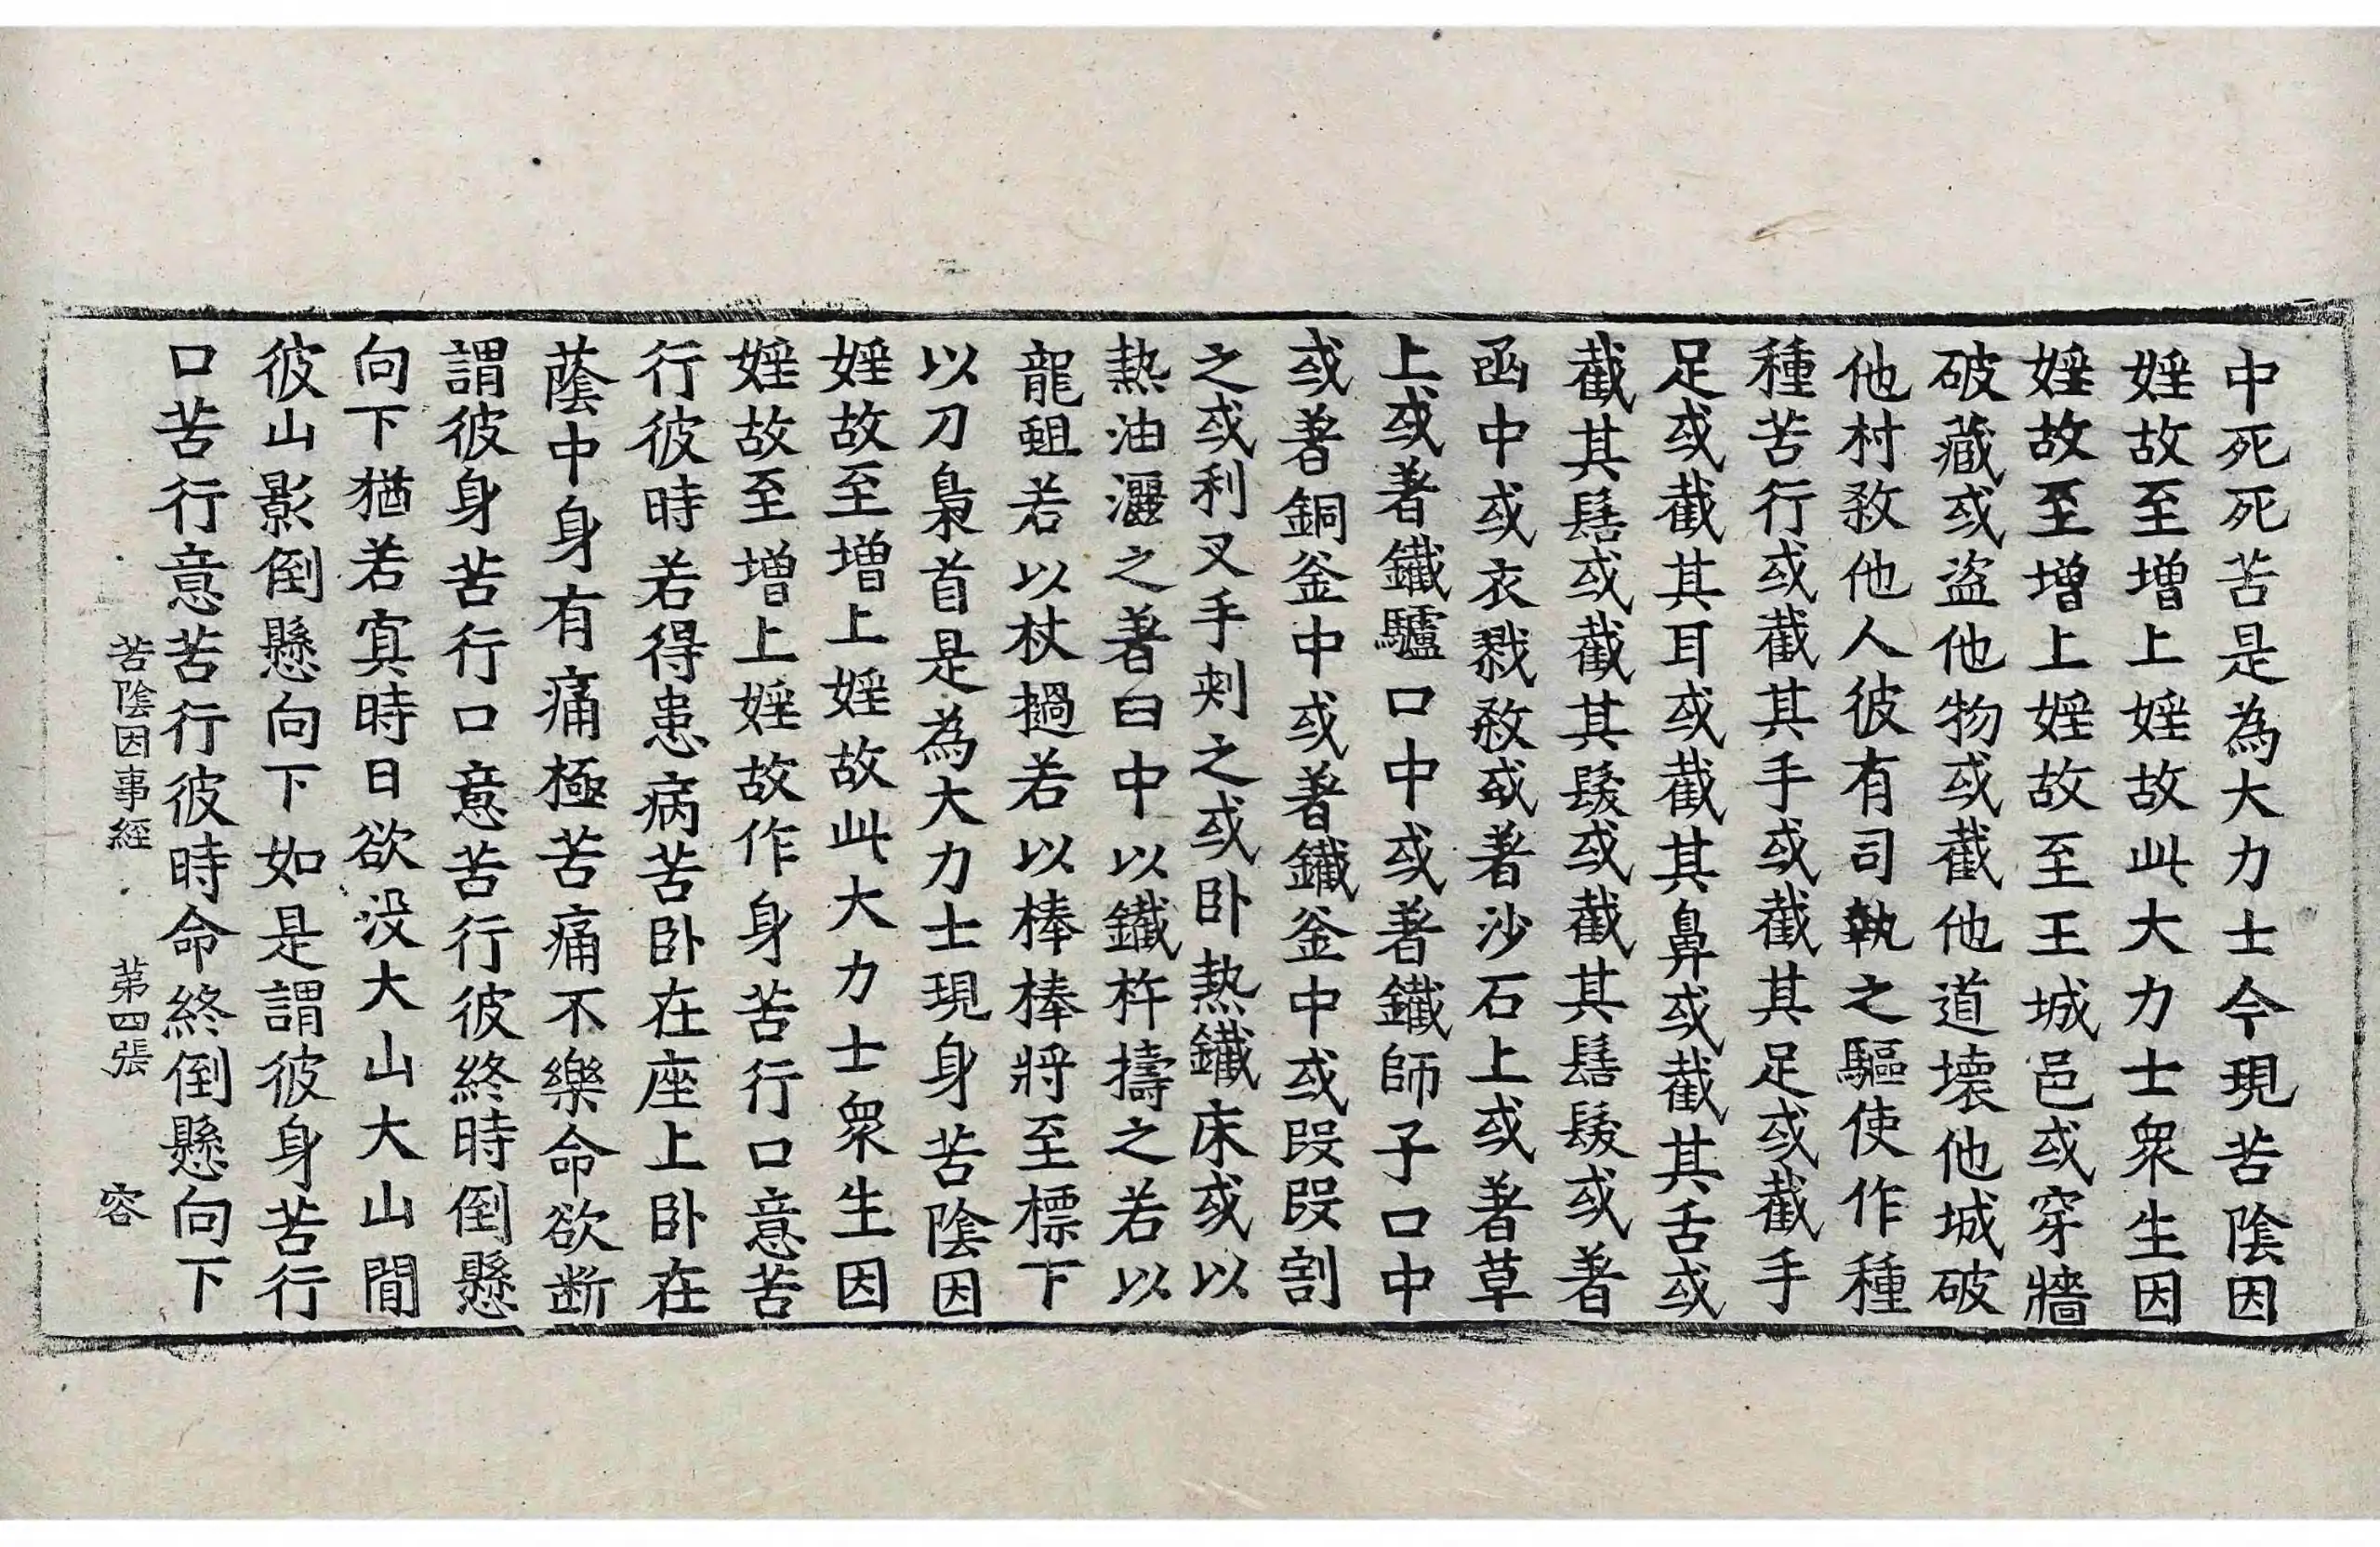 中死死苦是為大力士今現苦陰因
婬故至增上婬故此大力士衆生因
婬故至增上婬故至王城邑或穿牆
破藏或盗他物或截他道壞他城破
他村煞他人彼有司執之驅使作種
種苦行或截其手或截其足或截手
足或截其耳或截其鼻或截其舌或
截其髻或截其髮或截其髻髮或著
函中或衣戮煞或著沙石上或著草
上或著鐵驢口中或著鐵師子口中
或著銅釜中或著鐵釜中或段段割
之或利叉手刾之或卧熱鐵床或以
熱油灑之著臼中以鐵杵擣之若以
龍蛆若以杖撾若以棒棒將至標下
以刀梟首是為大力士現身苦陰因
婬故至增上婬故此大力士衆生因
婬故至增上婬故作身苦行口意苦
行彼時若得患病苦卧在座上卧在
蔭中身有痛極苦痛不樂命欲断
謂彼身苦行口意苦行彼終時倒懸
向下猶若寘時日欲没大山大山間
彼山影倒懸向下如是謂彼身苦行
口苦行意苦行彼時命終倒懸向下
苦陰因事經 第四張 容